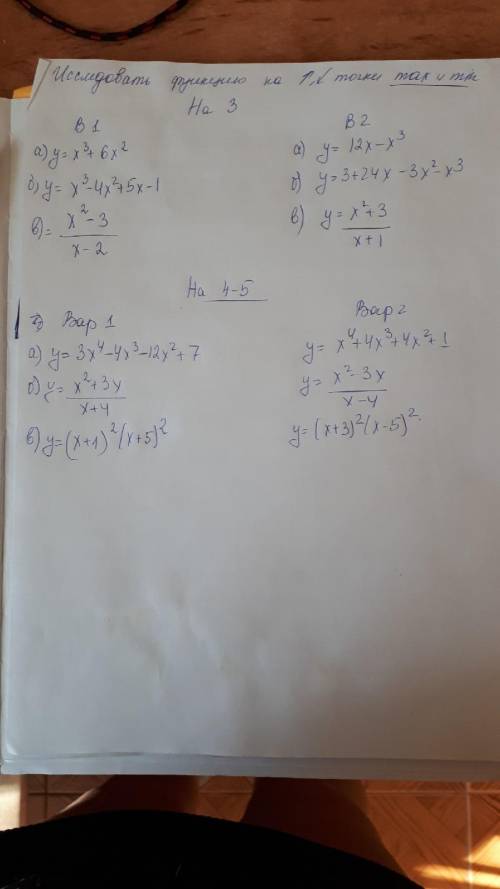 Исследовать функцию на ↑,↓ точки max и min
На 3
В 1
а) y = x³ + 6x²
б) y = x³ - 4x² + 5x - 1
в) = (x² - 3)/(x - 2)
В 2
а) y = 12x - x³
б) y = 3 + 24x - 3x² - x³
в) y = (x² + 3)/(x + 1)
На 4-5
Вар 1
а) y = 3x⁴ - 4x³ - 12x² + 7
б) y = (x² + 3x)/(x + 4)
в) y = (x+1)²(x+5)²
Вар 2
y = x⁴ + 4x³ + 4x² + 1
y = (x² - 3x)/(x - 4)
y = (x+3)²(x-5)².